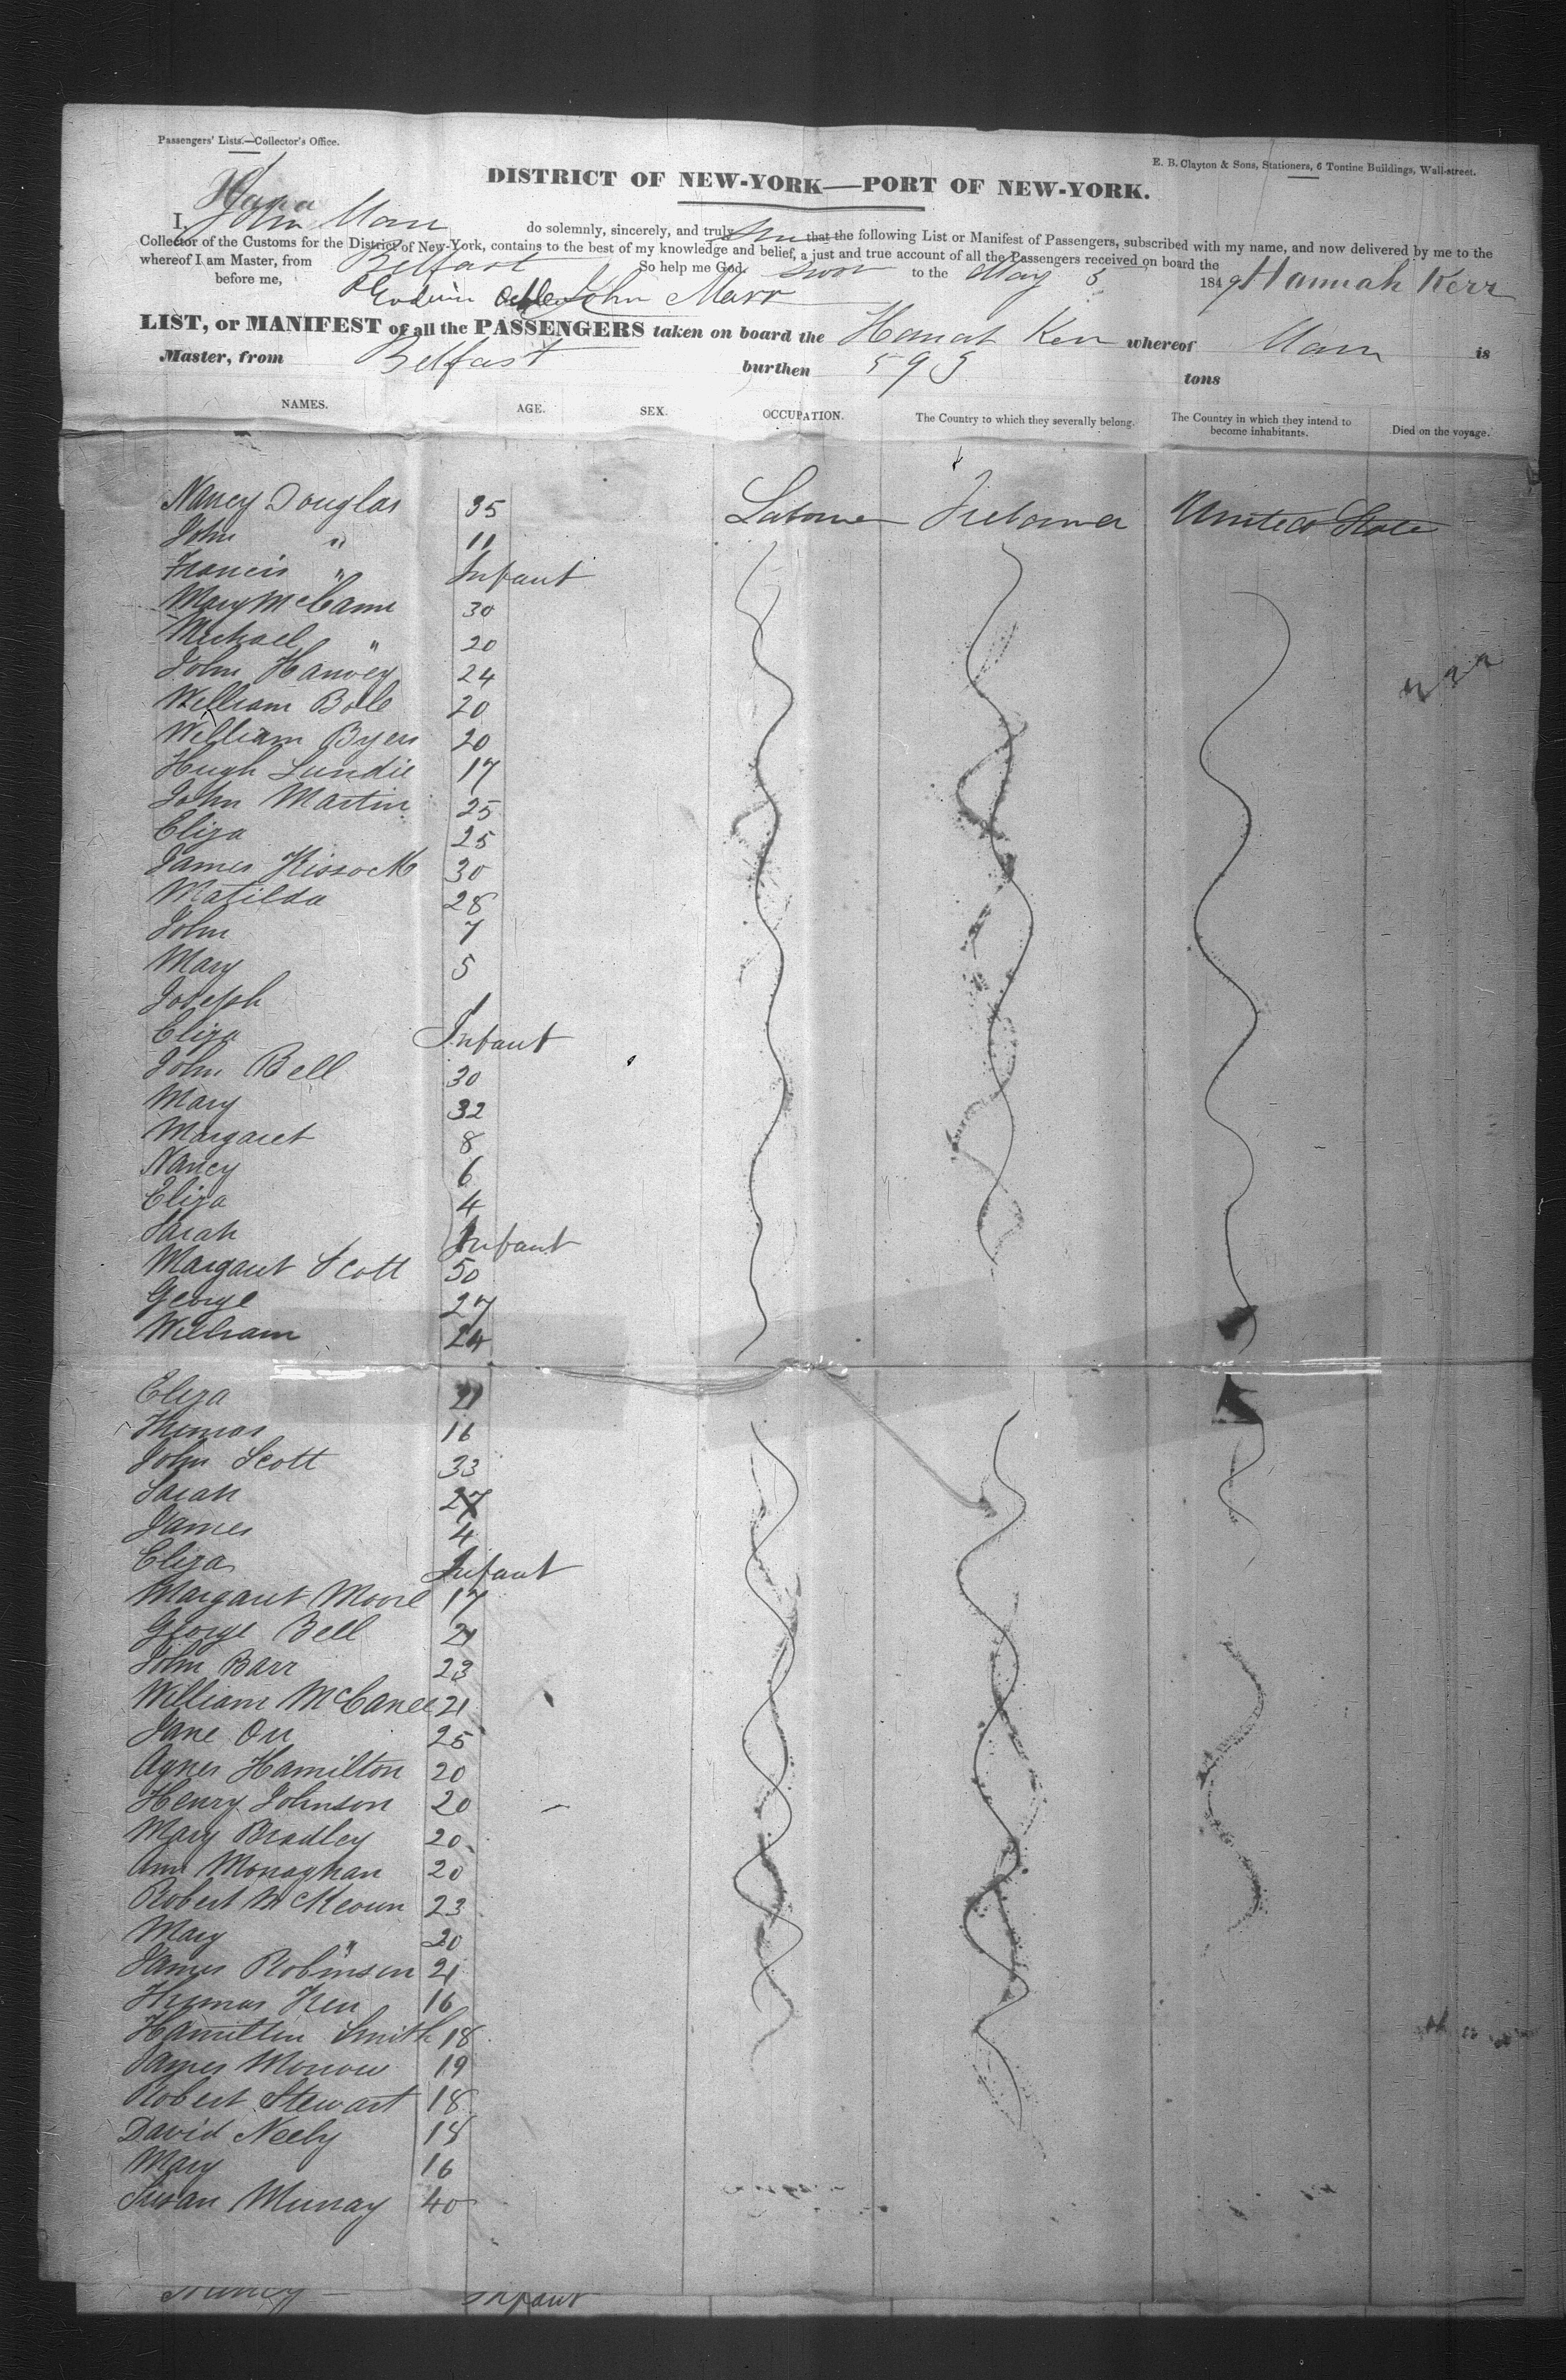 Passengers' Lists.—Collector's Office.
E. B. Clayton & Sons, Stationers, 6 Tontine Buildings, Wall-street.
DISTRICT OF NEW-YORK—PORT OF NEW-YORK.
I, John Marr do solemnly, sincerely, and truly that the following List or Manifest of Passengers, subscribed with my name, and now delivered by me to the
Collector of the Customs for the District of New-York, contains to the best of my knowledge and belief, a just and true account of all the Passengers received on board the
whereof I am Master, from Belfast So help me God. Hannah Kerr
before me, to the May 5 1849
John Marr
LIST, or MANIFEST of all the PASSENGERS taken on board the Hanah Kerr whereof Marr is
Master, from Belfast burthen 595 tons
NAMES. AGE. SEX. OCCUPATION. The Country to which they severally belong. The Country in which they intend to become inhabitants. Died on the voyage.
Nancy Douglas 35 Labourer Ireland United State
John " 11
Francis " Infant
Mary McCann 30
Michael " 20
John Harvey 24
William Bole 20
William Byers 20
Hugh Lundie 17
John Martin 25
Eliza 25
James Kissock 30
Matilda 28
John 7
Mary 5
Joseph 1
Eliza Infant
John Bell 30
Mary 32
Margaret 8
Nancy 6
Eliza 4
Sarah Infant
Margaret Scott 50
George 27
William 24
Eliza 21
Thomas 16
John Scott 33
Sarah 27
James 4
Eliza Infant
Margaret Moore 17
George Bell 21
John Barr 23
William McCance 21
Jane Orr 25
Agnes Hamilton 20
Henry Johnson 20
Mary Bradley 20
Ann Monaghan 20
Robert McKeown 23
Mary " 20
James Robinson 21
Thomas Kerr 16
Hamilton Smith 18
James Morrow 19
Robert Stewart 18
David Neely 18
Mary 16
Susan Murray 40
Infant